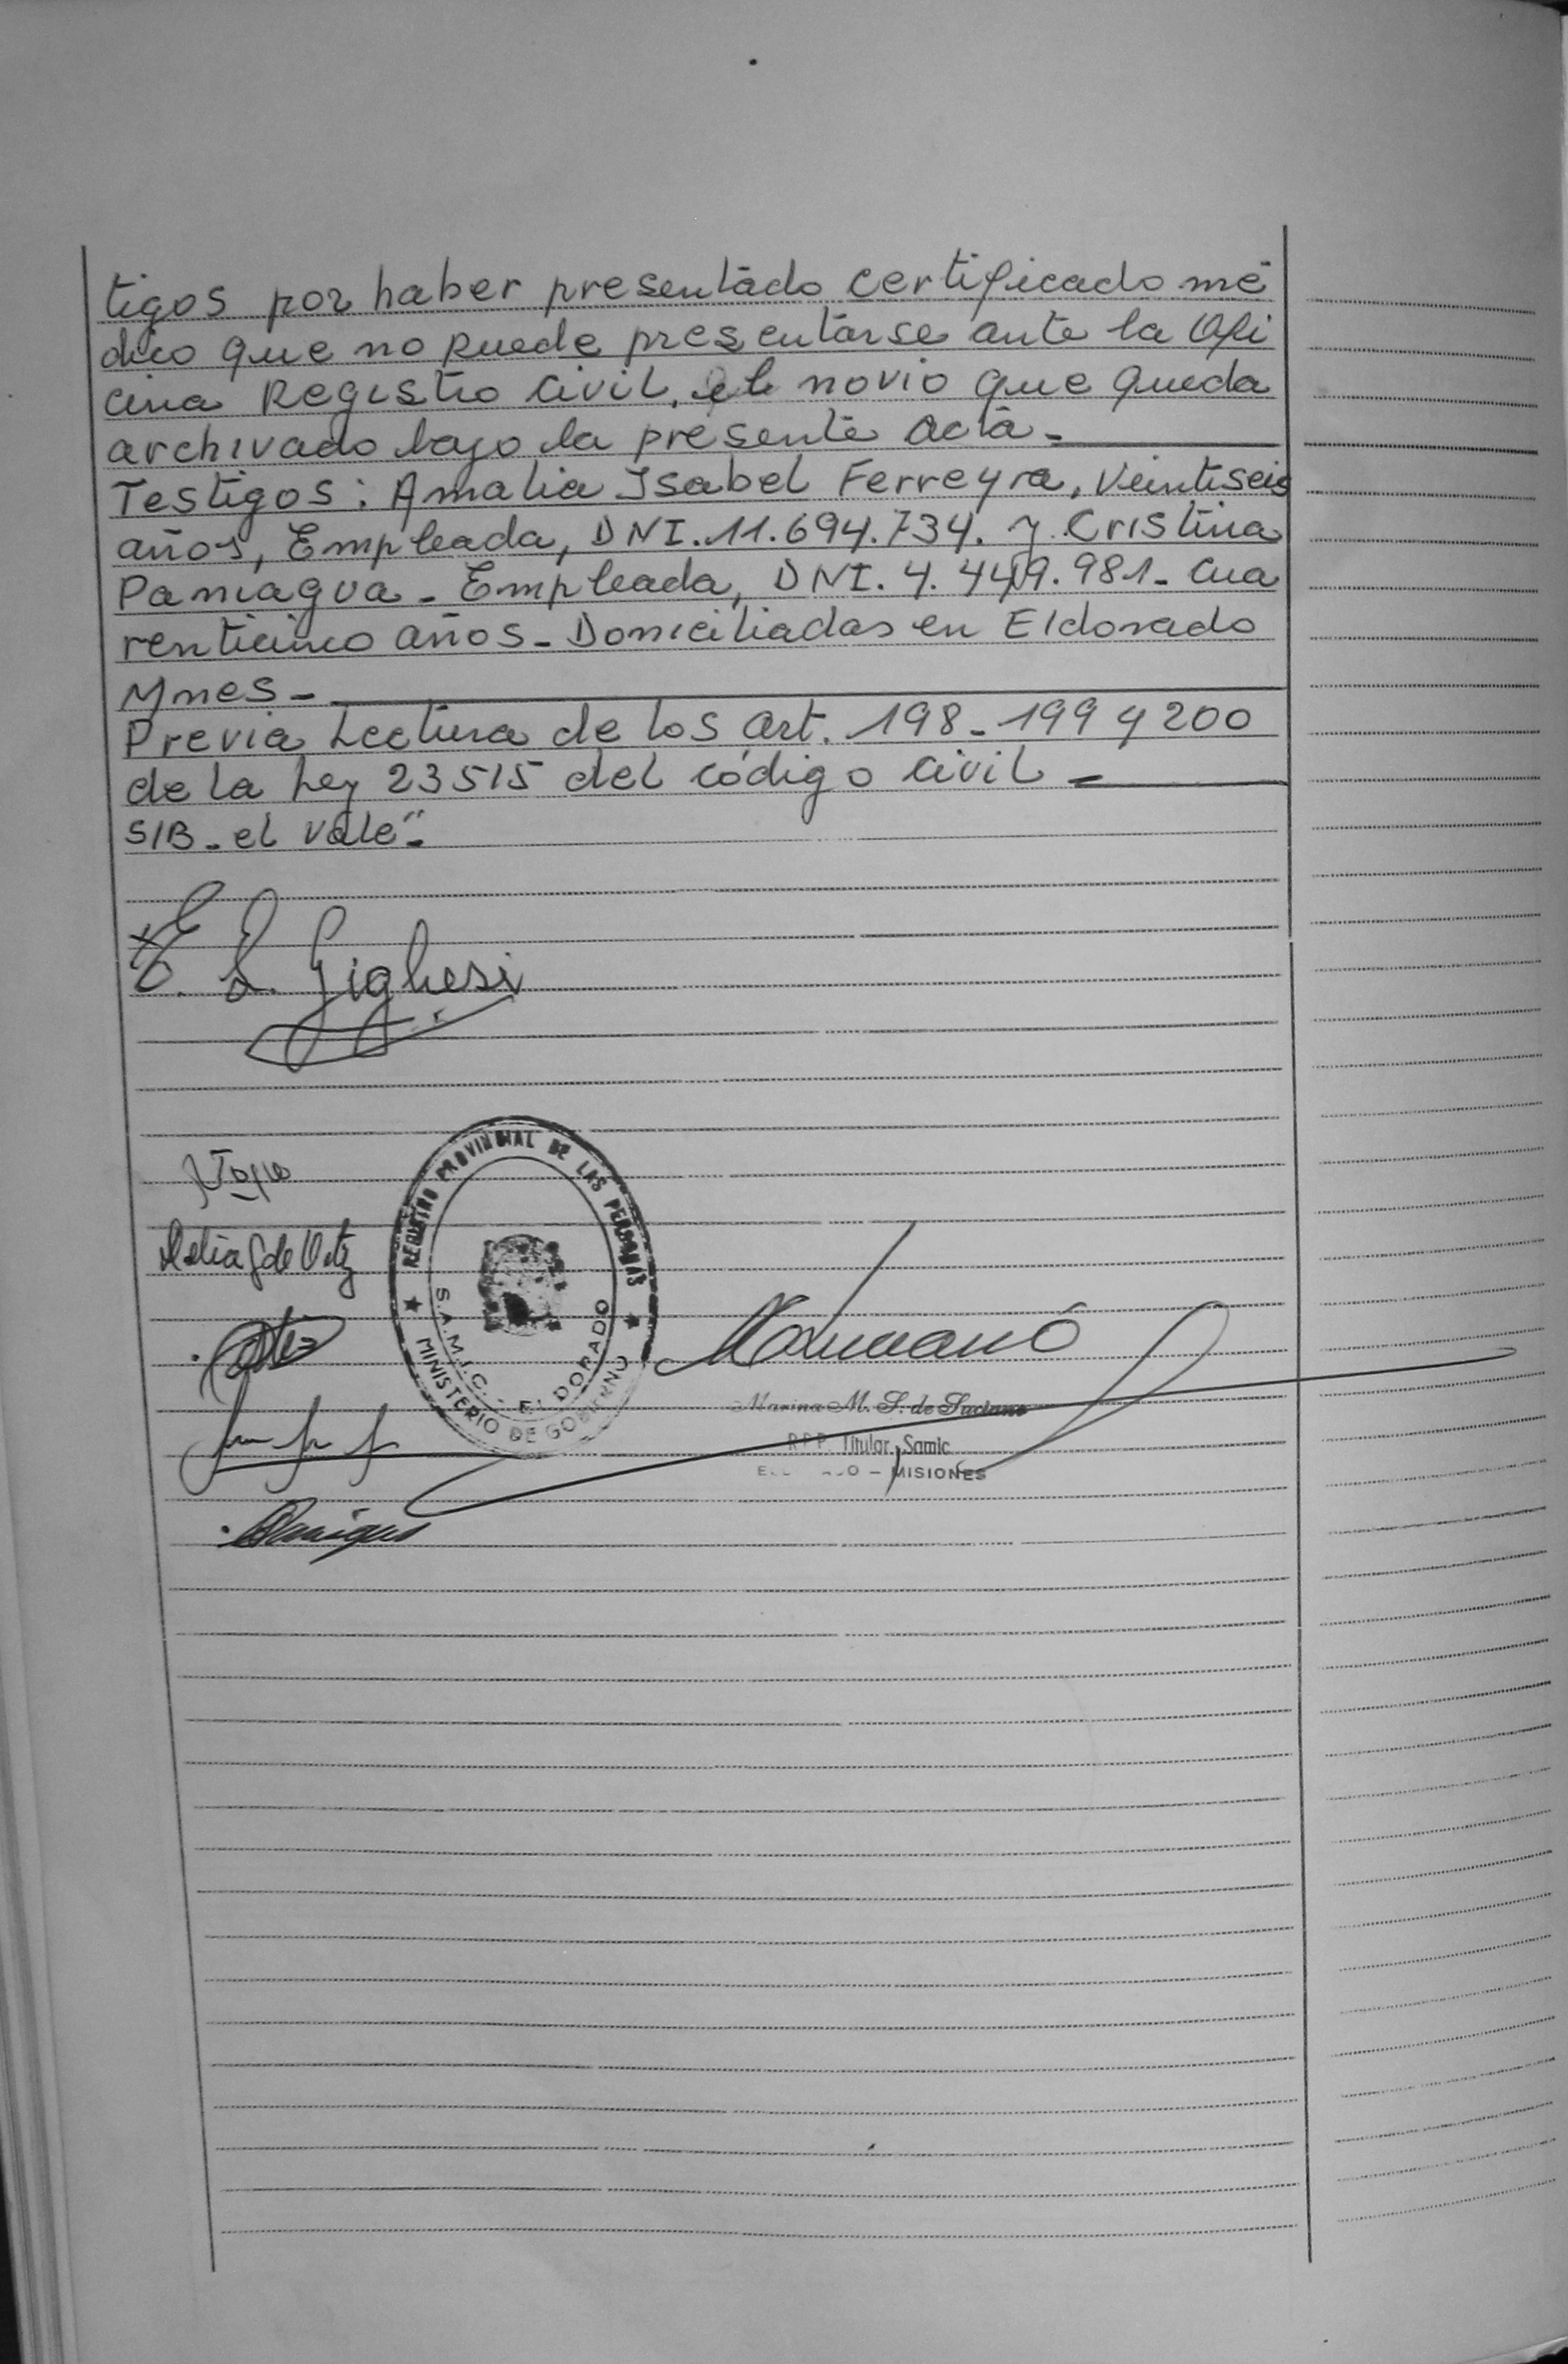 tigos por haber presentado certificado mé
dico que no puede presentarse ante la Ofi
cina Registro Civil, el novio que queda
archivado bajo la presente acta.
Testigos: Amalia Isabel Ferreyra, Veintiseis
años, Empleada, DNI. 11.694.734. y Cristina
Paniagua - Empleada, DNI. 4.449.981- Cua
renticinco años - Domiciliadas en Eldorado
Mnes -
Previa Lectura de los art. 198 - 199 y 200
de la Ley 23515 del código civil -
S/B - el vale" -
E. L. Gighesi
REGISTRO PROVINCIAL DE LAS PERSONAS
S.A.M.I.C. - ELDORADO
MINISTERIO DE GOBIERNO
Marina M. S. de
R.P.P. Titular Samic
MISIONES